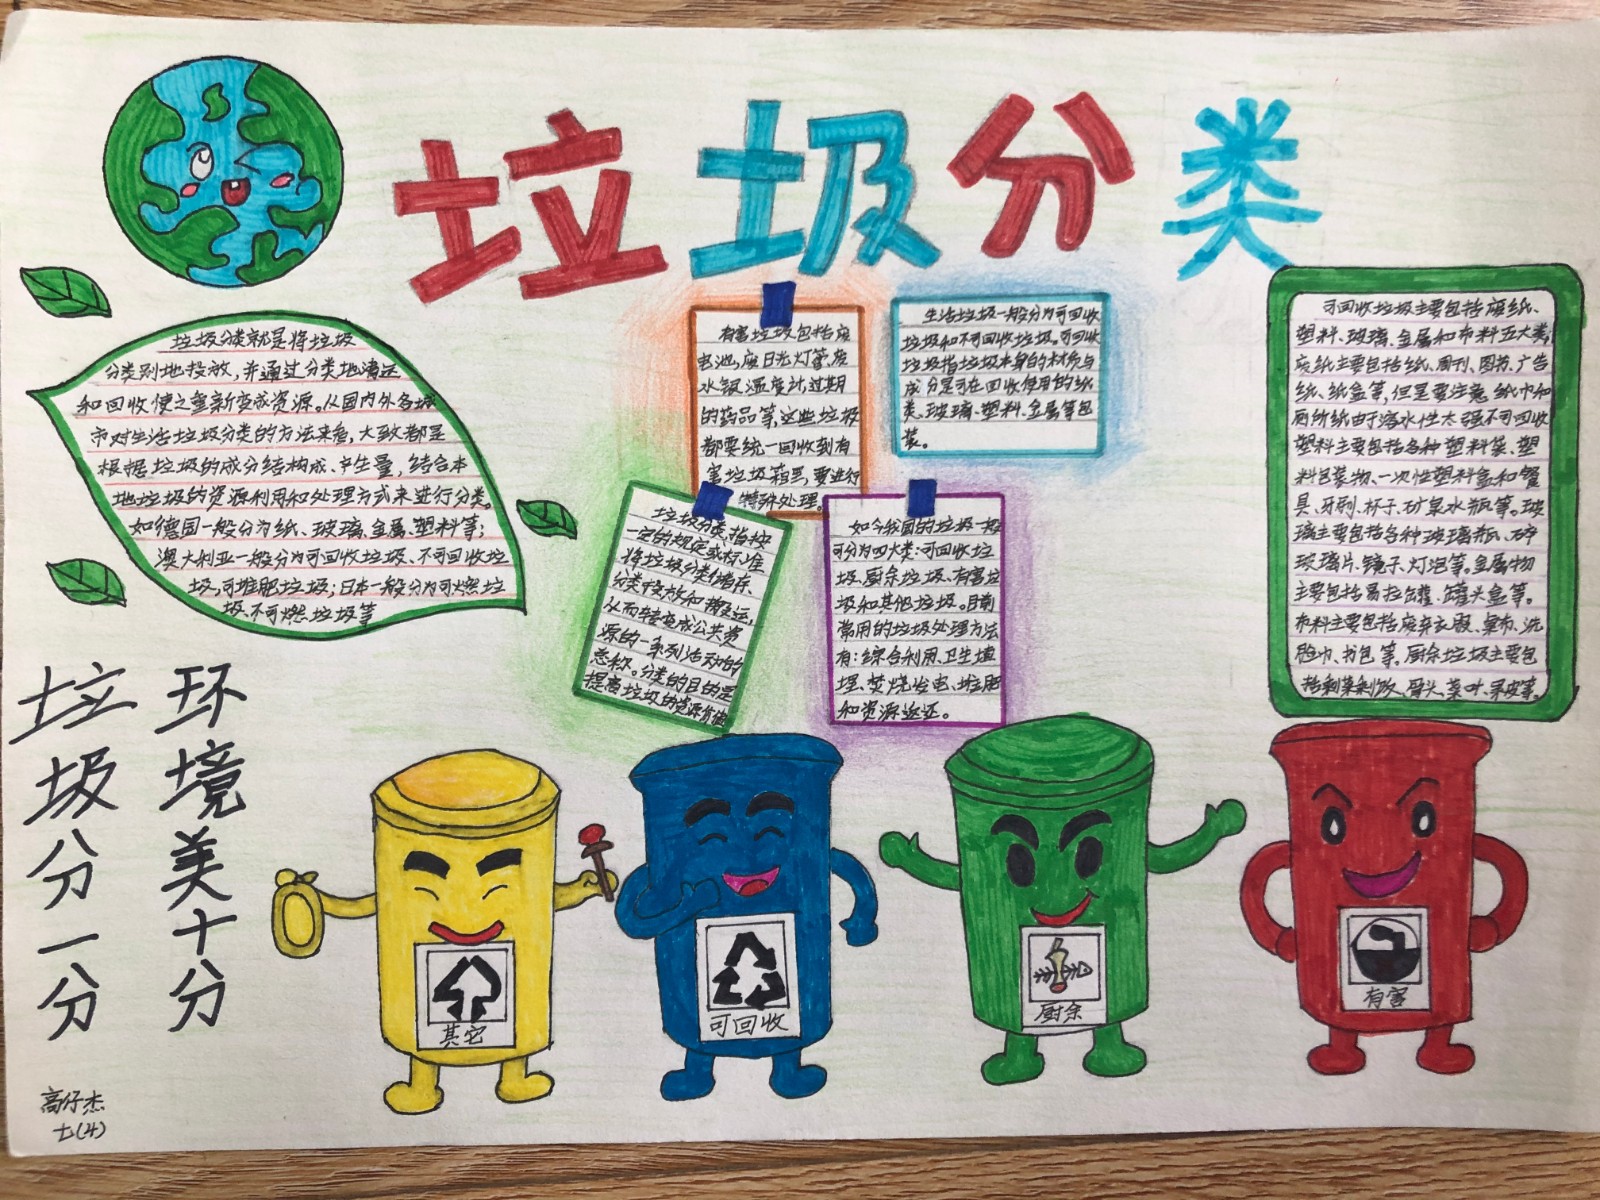 垃圾分类
垃圾分类就是将垃圾
分类别地投放,并通过分类地清运
和回收使之重新变成资源。从国内外各城
市对生活垃圾分类的方法来看,大致都是
根据垃圾的成分结构成、产生量,结合本
地垃圾的资源利用和处理方式来进行分类。
如德国一般分为纸、玻璃、金属、塑料等;
澳大利亚一般分为可回收垃圾、不可回收垃
圾,可堆肥垃圾;日本一般分为可燃垃
圾、不可燃垃圾等
有害垃圾包括废
电池,废日光灯管,废
水银温度计,过期
的药品等,这些垃圾
都要统一回收到有
害垃圾箱里,要进行
特殊处理。
生活垃圾一般分为可回收
垃圾和不可回收垃圾。可回收
垃圾指垃圾本身的材质与
成分是可在回收使用的纸
类、玻璃、塑料、金属等包
装。
垃圾分类,指按
一定的规定或标准
将垃圾分类储存、
分类投放和搬运,
从而转变成公共资
源的一系列活动的
总称。分类的目的是
提高垃圾的资源价值
如今我国的垃圾一般
可分为四大类:可回收垃
圾、厨余垃圾、有害垃
圾和其他垃圾。目前
常用的垃圾处理方法
有:综合利用、卫生填
埋、焚烧发电、堆肥
和资源返还。
可回收垃圾主要包括废纸、
塑料、玻璃、金属和布料五大类,
废纸主要包括纸、周刊、图书、广告
纸、纸盒等,但是要注意纸巾和
厕所纸由于溶水性太强不可回收
塑料主要包括各种塑料袋、塑
料包装物、一次性塑料盒和餐
具、牙刷、杯子、矿泉水瓶等。玻
璃主要包括各种玻璃瓶、碎
玻璃片、镜子、灯泡等。金属物
主要包括易拉罐、罐头盒等。
布料主要包括废弃衣服、桌布、洗
脸巾、书包等。厨余垃圾主要包
括剩菜剩饭、骨头、菜叶、果皮等。
垃圾分一分
环境美十分
其它
可回收
厨余
有害
高仔杰
七(4)